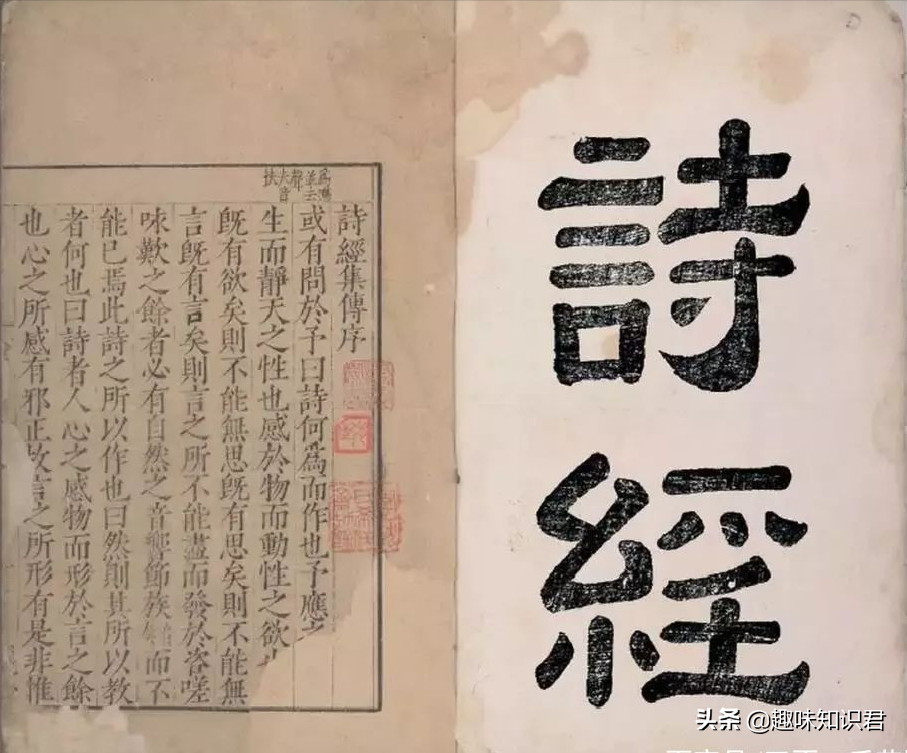 詩經
詩經集傳序
或有問於予曰詩何爲而作也予應之
生而靜天之性也感於物而動性之欲也
既有欲矣則不能無思既有思矣則不能無
言既有言矣則言之所不能盡而發於咨嗟
咏歎之餘者必有自然之音響節族而不
能已焉此詩之所以作也曰然則其所以教
者何也曰詩者人心之感物而形於言之餘
也心之所感有邪正故言之所形有是非惟
頭条 @趣味知识君